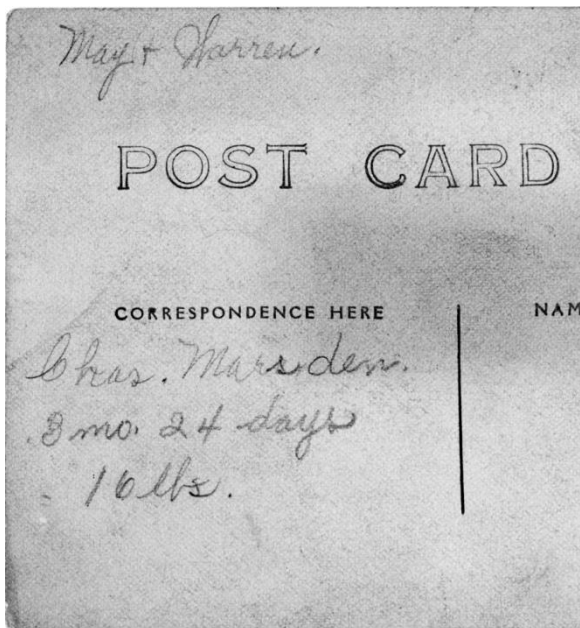 May + Warren.
POST CARD
CORRESPONDENCE HERE
NAM
Chas. Marsden.
3 mo. 24 days
16 lbs.